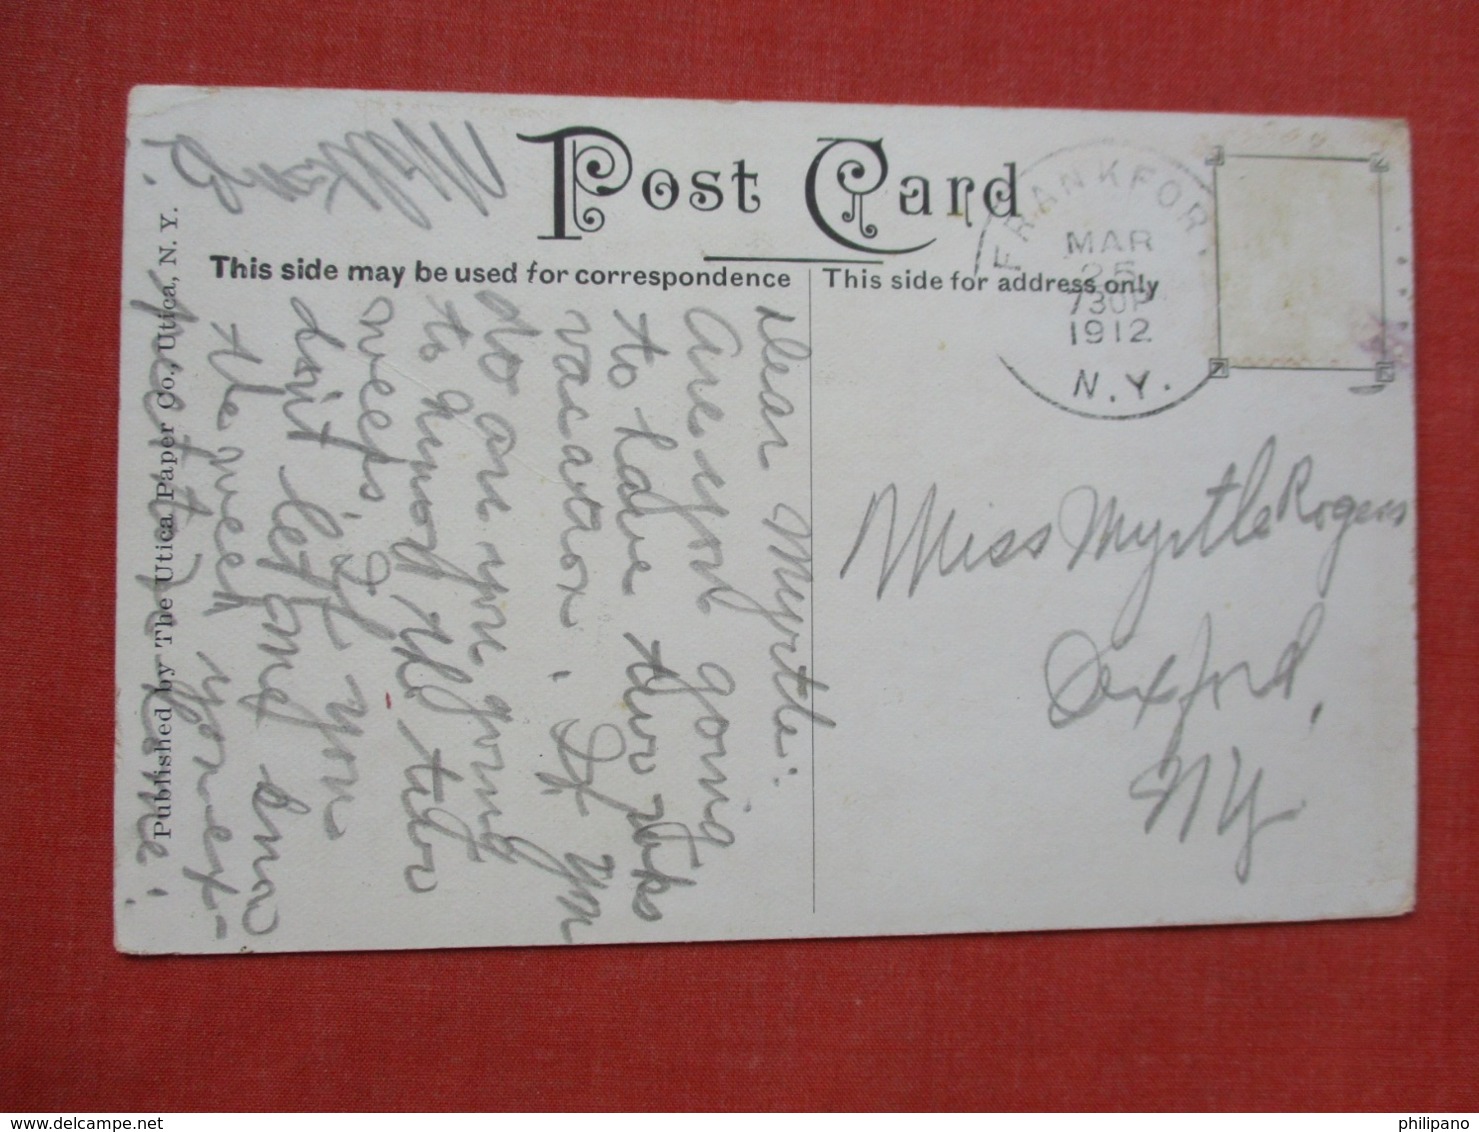 Post Card
This side may be used for correspondence
This side for address only
FRANKFOR
MAR
25
730P
1912
N.Y.
Miss Myrtle Rogers
Oxford,
NY
Dear Myrtle:
Are you going
to have two wks
vacation. If you
do are you going
to
weeks, If you
don't let me know
the week you ex-
pect to come.
Published by The Utica Paper Co., Utica, N. Y.
philipano
delcampe.net